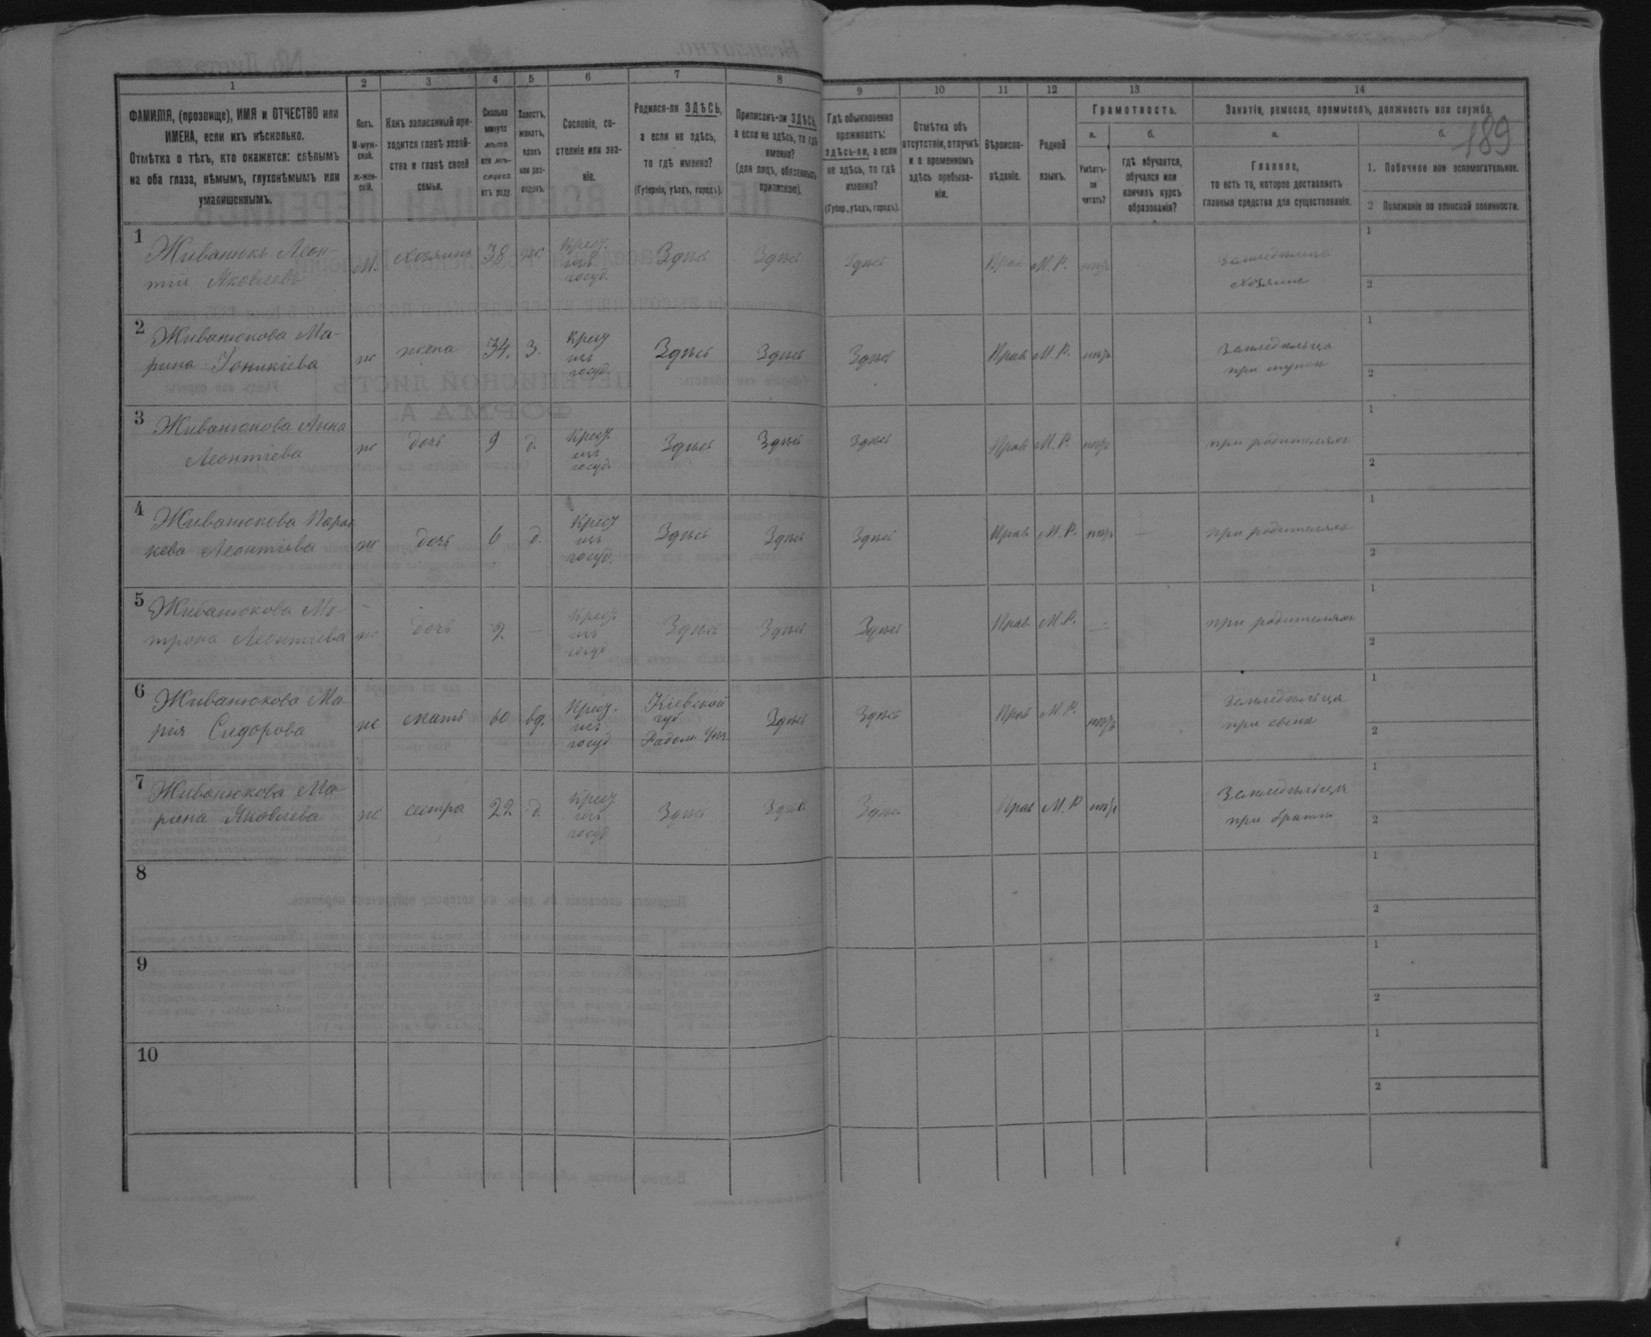 189
1 2 3 4 5 6 7 8 9 10 11 12 13 14
ФАМИЛІЯ, (прозвище), ИМЯ и ОТЧЕСТВО или
ИМЕНА, если ихъ нѣсколько.
Отмѣтка о тѣхъ, кто окажется: слѣпымъ
на оба глаза, нѣмымъ, глухонѣмымъ или
умалишеннымъ.
Полъ.
М-муж-
ской.
Ж-жен-
скій.
Какъ записанный при-
ходится главѣ хозяй-
ства и главѣ своей
семьи.
Сколько
минуло
лѣтъ
или мѣ-
сяцевъ
отъ роду.
Холостъ,
женатъ,
вдовъ
или раз-
веденъ.
Сословіе, со-
стояніе или зва-
ніе.
Родился-ли ЗДѢСЬ,
а если не здѣсь,
то гдѣ именно?
(Губернія, уѣздъ, городъ).
Приписанъ-ли ЗДѢСЬ,
а если не здѣсь, то гдѣ
именно?
(для лицъ, обязанныхъ
припискою).
Гдѣ обыкновенно
проживаетъ:
здѣсь-ли, а если
не здѣсь, то гдѣ
именно?
(Губер., уѣздъ, городъ).
Отмѣтка объ
отсутствіи, отлучкѣ
и о временномъ
здѣсь пребыва-
ніи.
Вѣроиспо-
вѣданіе.
Родной
языкъ.
Грамотность.
а.
Умѣетъ-
ли
читать?
б.
гдѣ обучается,
обучался или
кончилъ курсъ
образованія?
Занятіе, ремесло, промыселъ, должность или служба.
а.
Главное,
то есть то, которое доставляетъ
главныя средства для существованія.
б.
1. Побочное или вспомогательное.
2 Положеніе по воинской повинности.
1
Живанюкъ Леон-
тій Яковлевъ
м. хозяинъ 38 ж Крест. изъ госуд. Здѣсь Здѣсь Здѣсь Прав М.Р. нѣтъ
Земледѣлецъ
хозяинъ
1
2
2
Живанюкова Ма-
рина Іоникіева
ж жена 34. з. Крест изъ госуд. Здѣсь Здѣсь Здѣсь Прав М.Р. нѣтъ
Земледѣльца
при мужѣ
1
2
3
Живанюкова Анна
Леонтіева
ж дочь 9 д. Крест. изъ госуд. Здѣсь Здѣсь Здѣсь Прав М.Р. нѣтъ при родителяхъ
1
2
4
Живанюкова Парас
кева Леонтіева
ж дочь 6 д. Крест изъ госуд. Здѣсь Здѣсь Здѣсь Прав М.Р. нѣтъ — при родителяхъ
1
2
5
Живанюкова Ма-
трона Леонтіева
ж дочь 2 — Крест изъ госуд Здѣсь Здѣсь Здѣсь Прав М.Р. — при родителяхъ
1
2
6
Живанюкова Ма-
рія Сидорова
ж мать 60 вд. Крест. изъ госуд Кіевской губ Радом. Уѣз. Здѣсь Здѣсь Прав М.Р. нѣтъ
Земледѣльца
при сынѣ
1
2
7
Живанюкова Ма-
рина Яковлева
ж сестра 22 д Крест изъ госуд Здѣсь Здѣсь Здѣсь Прав М.Р нѣтъ
Земледѣльца
при братѣ
1
2
8
1
2
9
1
2
10
1
2